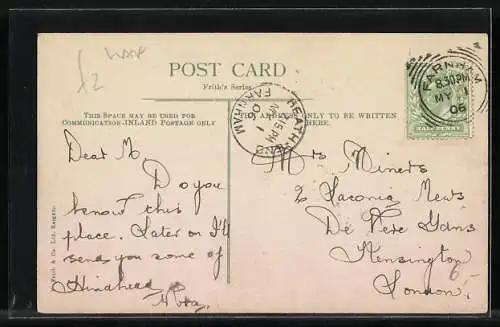 £2
POST CARD
Frith's Series
THIS SPACE MAY BE USED FOR
COMMUNICATION-INLAND POSTAGE ONLY
THE ADDRESS ONLY TO BE WRITTEN
HERE.
Dear M.
Do you
know this
place. Later on I'll
send you some of
Hindhead
Mrs Miners
2 Laconia Mews
De Vere Gdns
Kensington
London.
FARNHAM
8.30PM
MY 1
06
HALFPENNY
HEATH END
FARNHAM
MY 1
06
Frith & Co. Ltd, Reigate.